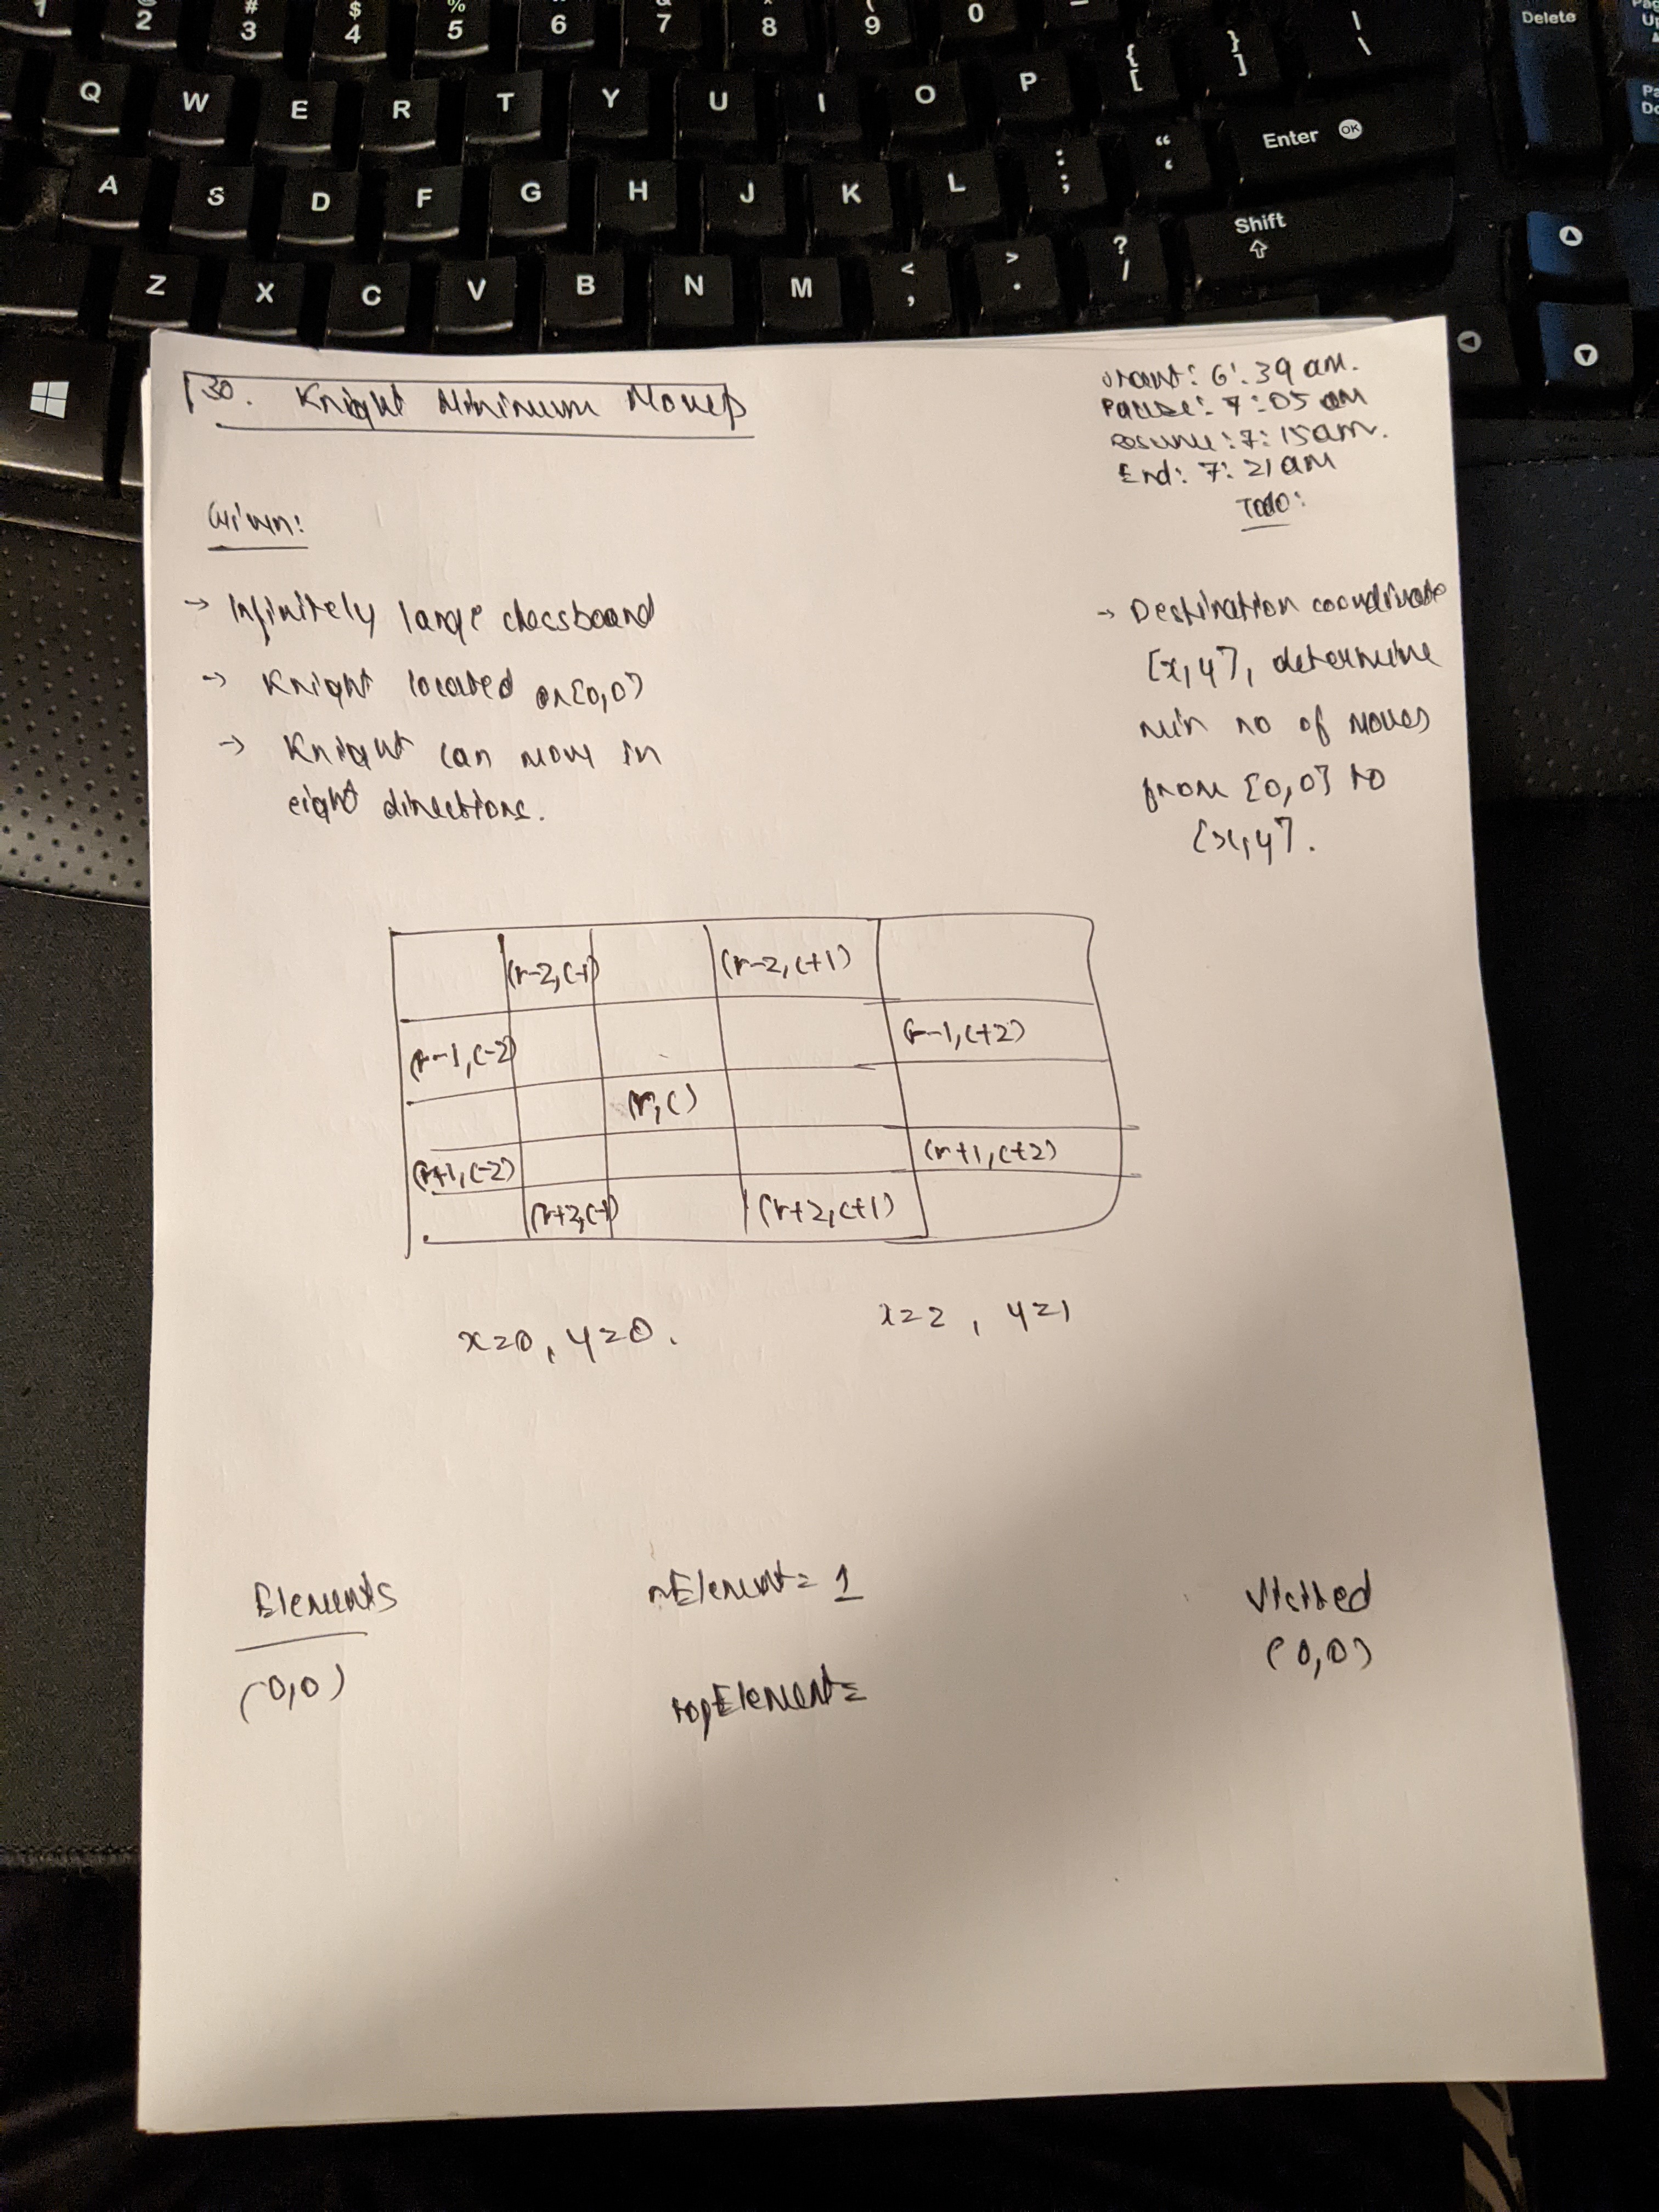 1 2 # 3 $ 4 % 5 6 & 7 * 8 ( 9 0
Delete
Q W E R T Y U I O P { [ } ] | \
A S D F G H J K L : ; “ ‘ Enter OK
Z X C V B N M < , > . ? / Shift
30. Knight Minimum Moves
Start: 6:39 am.
Pause: 7:05 am
Resume: 7:15 am.
End: 7:21 am
Todo:
Given:
→ Infinitely large chessboard
→ Knight located on [0,0]
→ Knight can move in
eight directions.
→ Destination coordinate
[x,y], determine
min no of moves
from [0,0] to
[x,y].
(r-2,c-1) (r-2,c+1)
(r-1,c-2) (r-1,c+2)
(r,c)
(r+1,c-2) (r+1,c+2)
(r+2,c-1) (r+2,c+1)
x=0, y=0. x=2, y=1
Elements nElement= 1 Visited
(0,0) (0,0)
topElement=